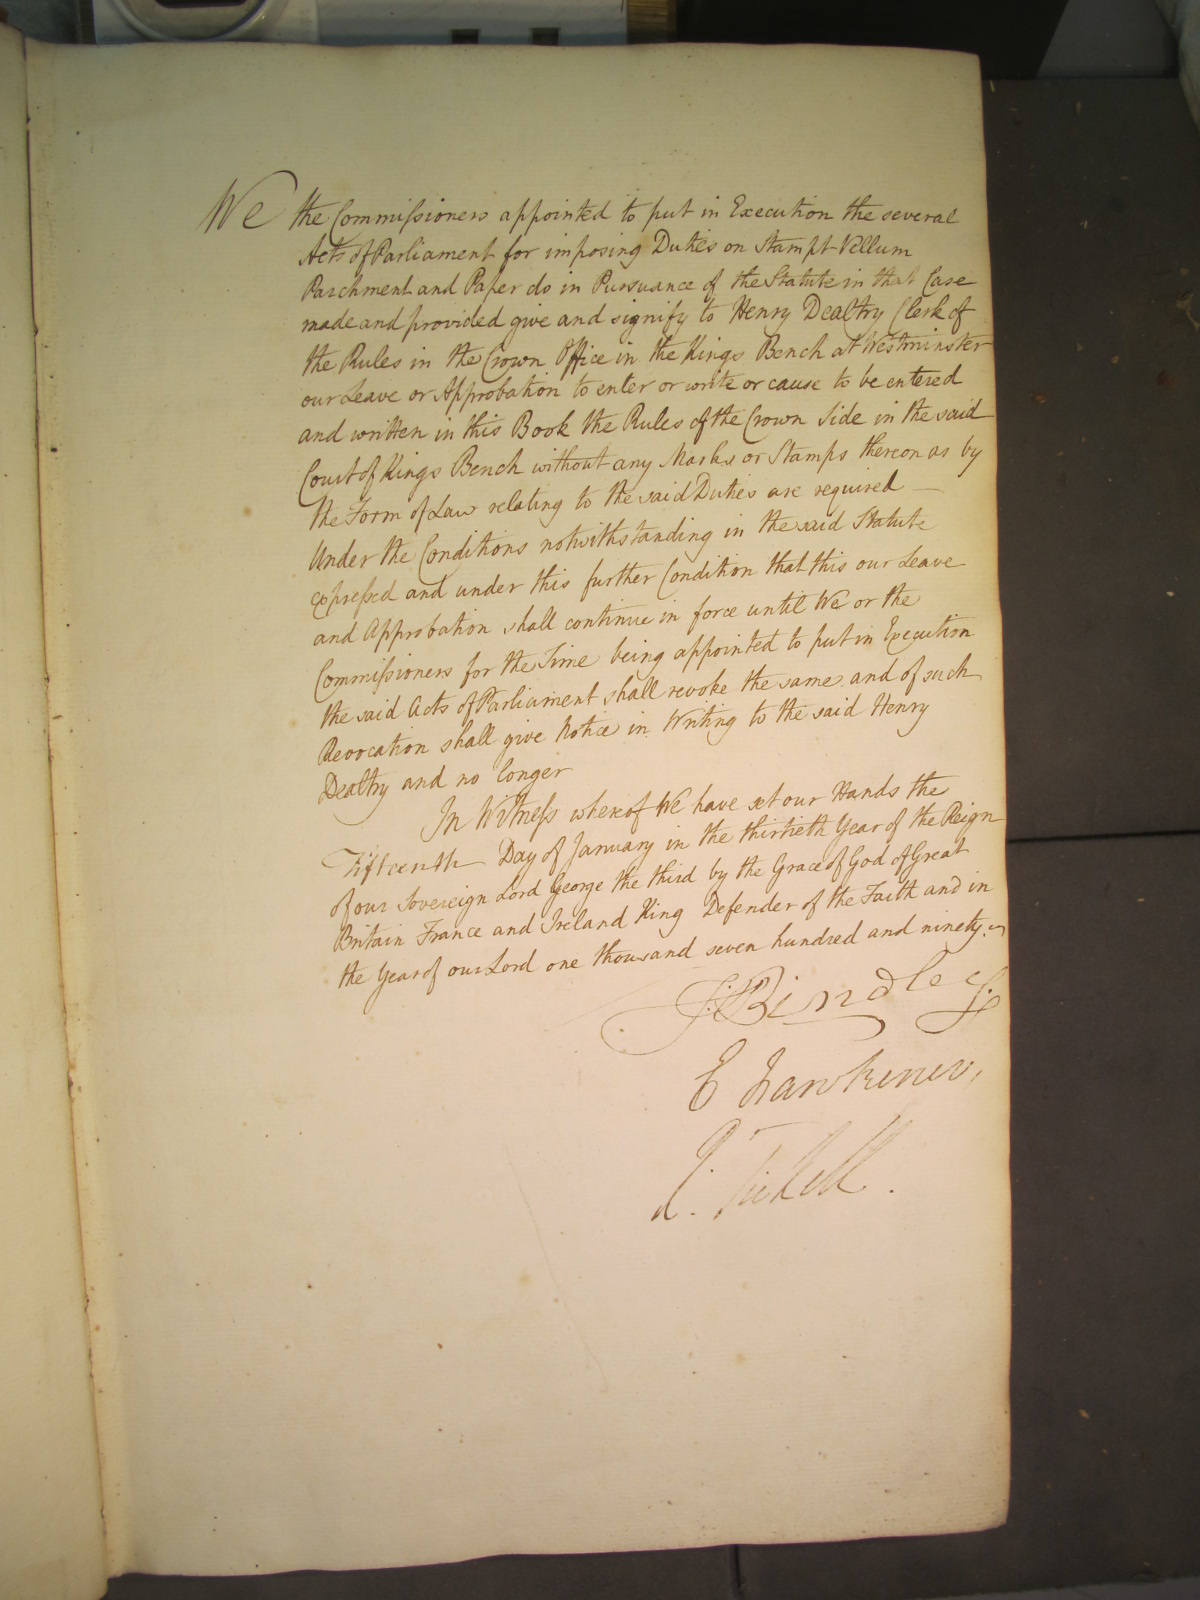 We the Commissioners appointed to put in Execution the several
Acts of Parliament for imposing Duties on Stampt Vellum
Parchment and Paper do in Pursuance of the Statute in that Case
made and provided give and signify to Henry Dealtry Clerk of
the Rules in the Crown Office in the Kings Bench at Westminster
our Leave or Approbation to enter or write or cause to be entered
and written in this Book the Rules of the Crown Side in the said
Court of Kings Bench without any Marks or Stamps thereon as by
the Form of Law relating to the said Duties are required
Under the Conditions notwithstanding in the said Statute
expressed and under this further Condition that this our Leave
and Approbation shall continue in force until We or the
Commissioners for the Time being appointed to put in Execution
the said Acts of Parliament shall revoke the same and of such
Revocation shall give Notice in Writing to the said Henry
Dealtry and no longer
In Witness whereof We have set our Hands the
Fifteenth Day of January in the thirtieth Year of the Reign
of our Sovereign Lord George the third by the Grace of God of Great
Britain France and Ireland King Defender of the Faith and in
the Year of our Lord one thousand seven hundred and ninety.
J: Bindley
R. Tickell.